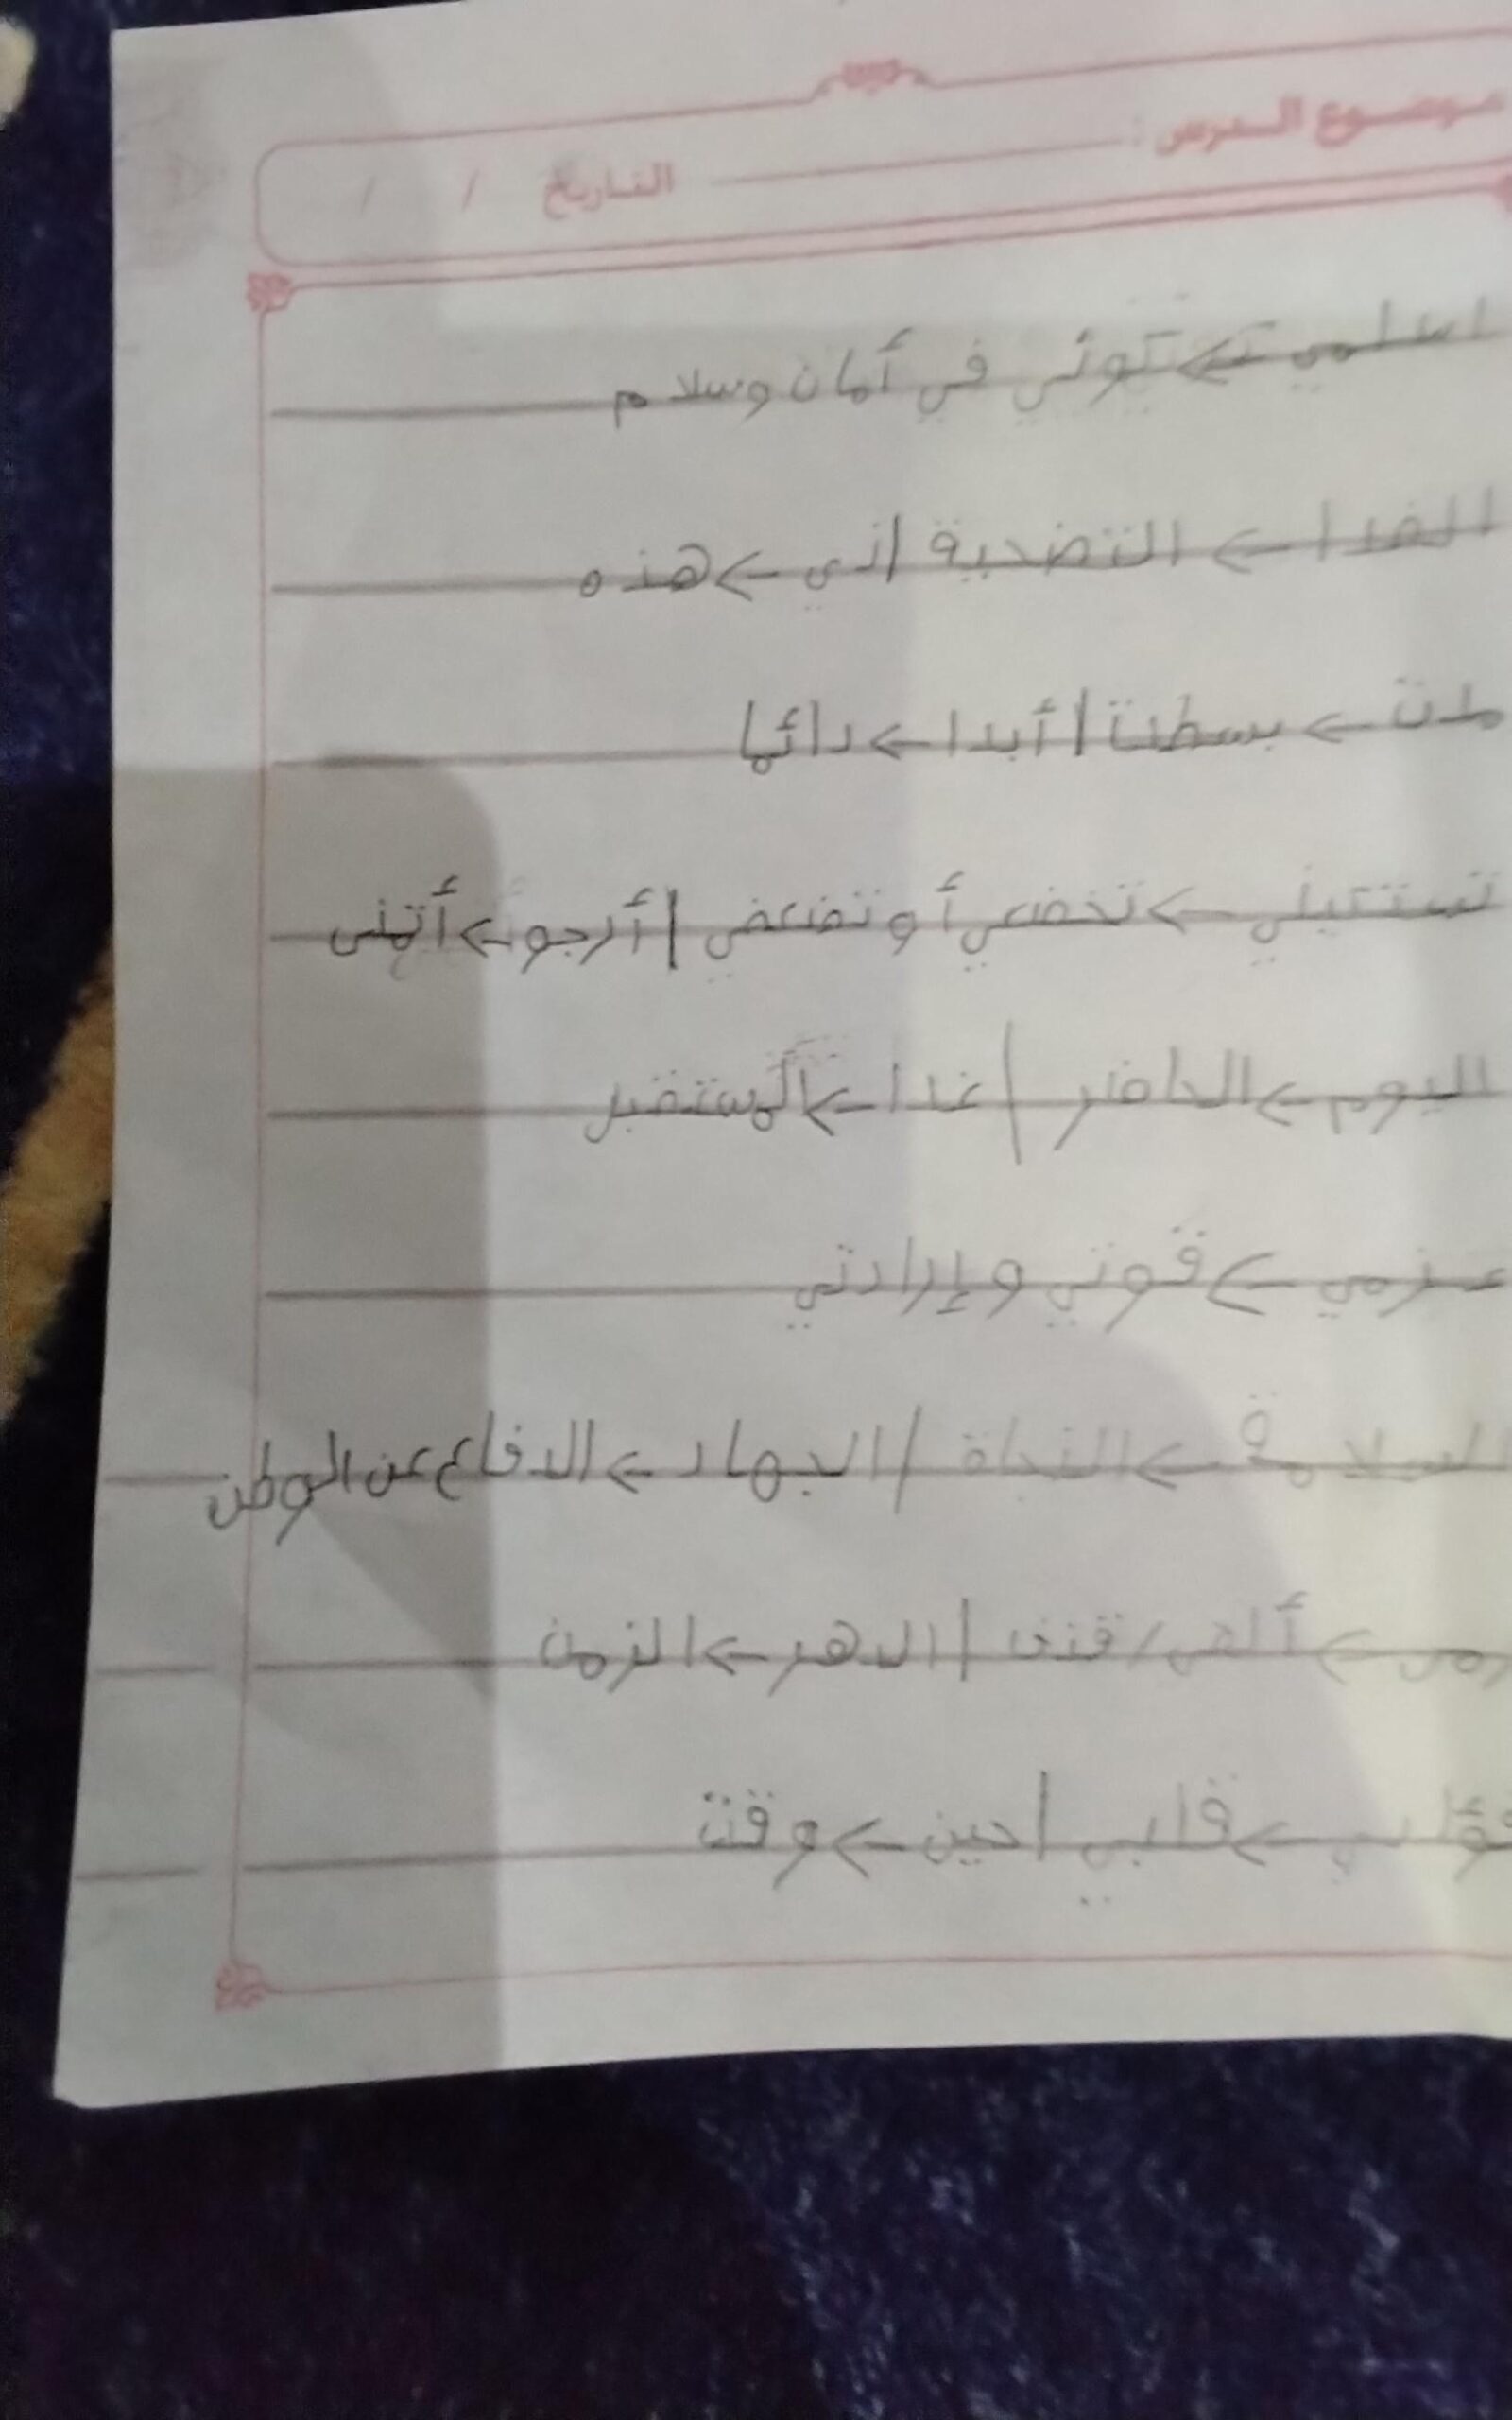 موضوع الدرس : التاريخ / /
اسلمي ← تكوني في أمان وسلام
الفدا ← التضحية / ذي ← هذه
مدت ← بسطت / أبدا ← دائما
تستكيني ← تخضعي أو تضعفي / أرجو ← أتمنى
اليوم ← الحاضر / غدا ← المستقبل
عزمي ← قوتي وإرادتي
السلامة ← النجاة / الجهاد ← الدفاع عن الوطن
← ألقى / قذف / الدهر ← الزمن
فؤادي ← قلبي / حين ← وقت